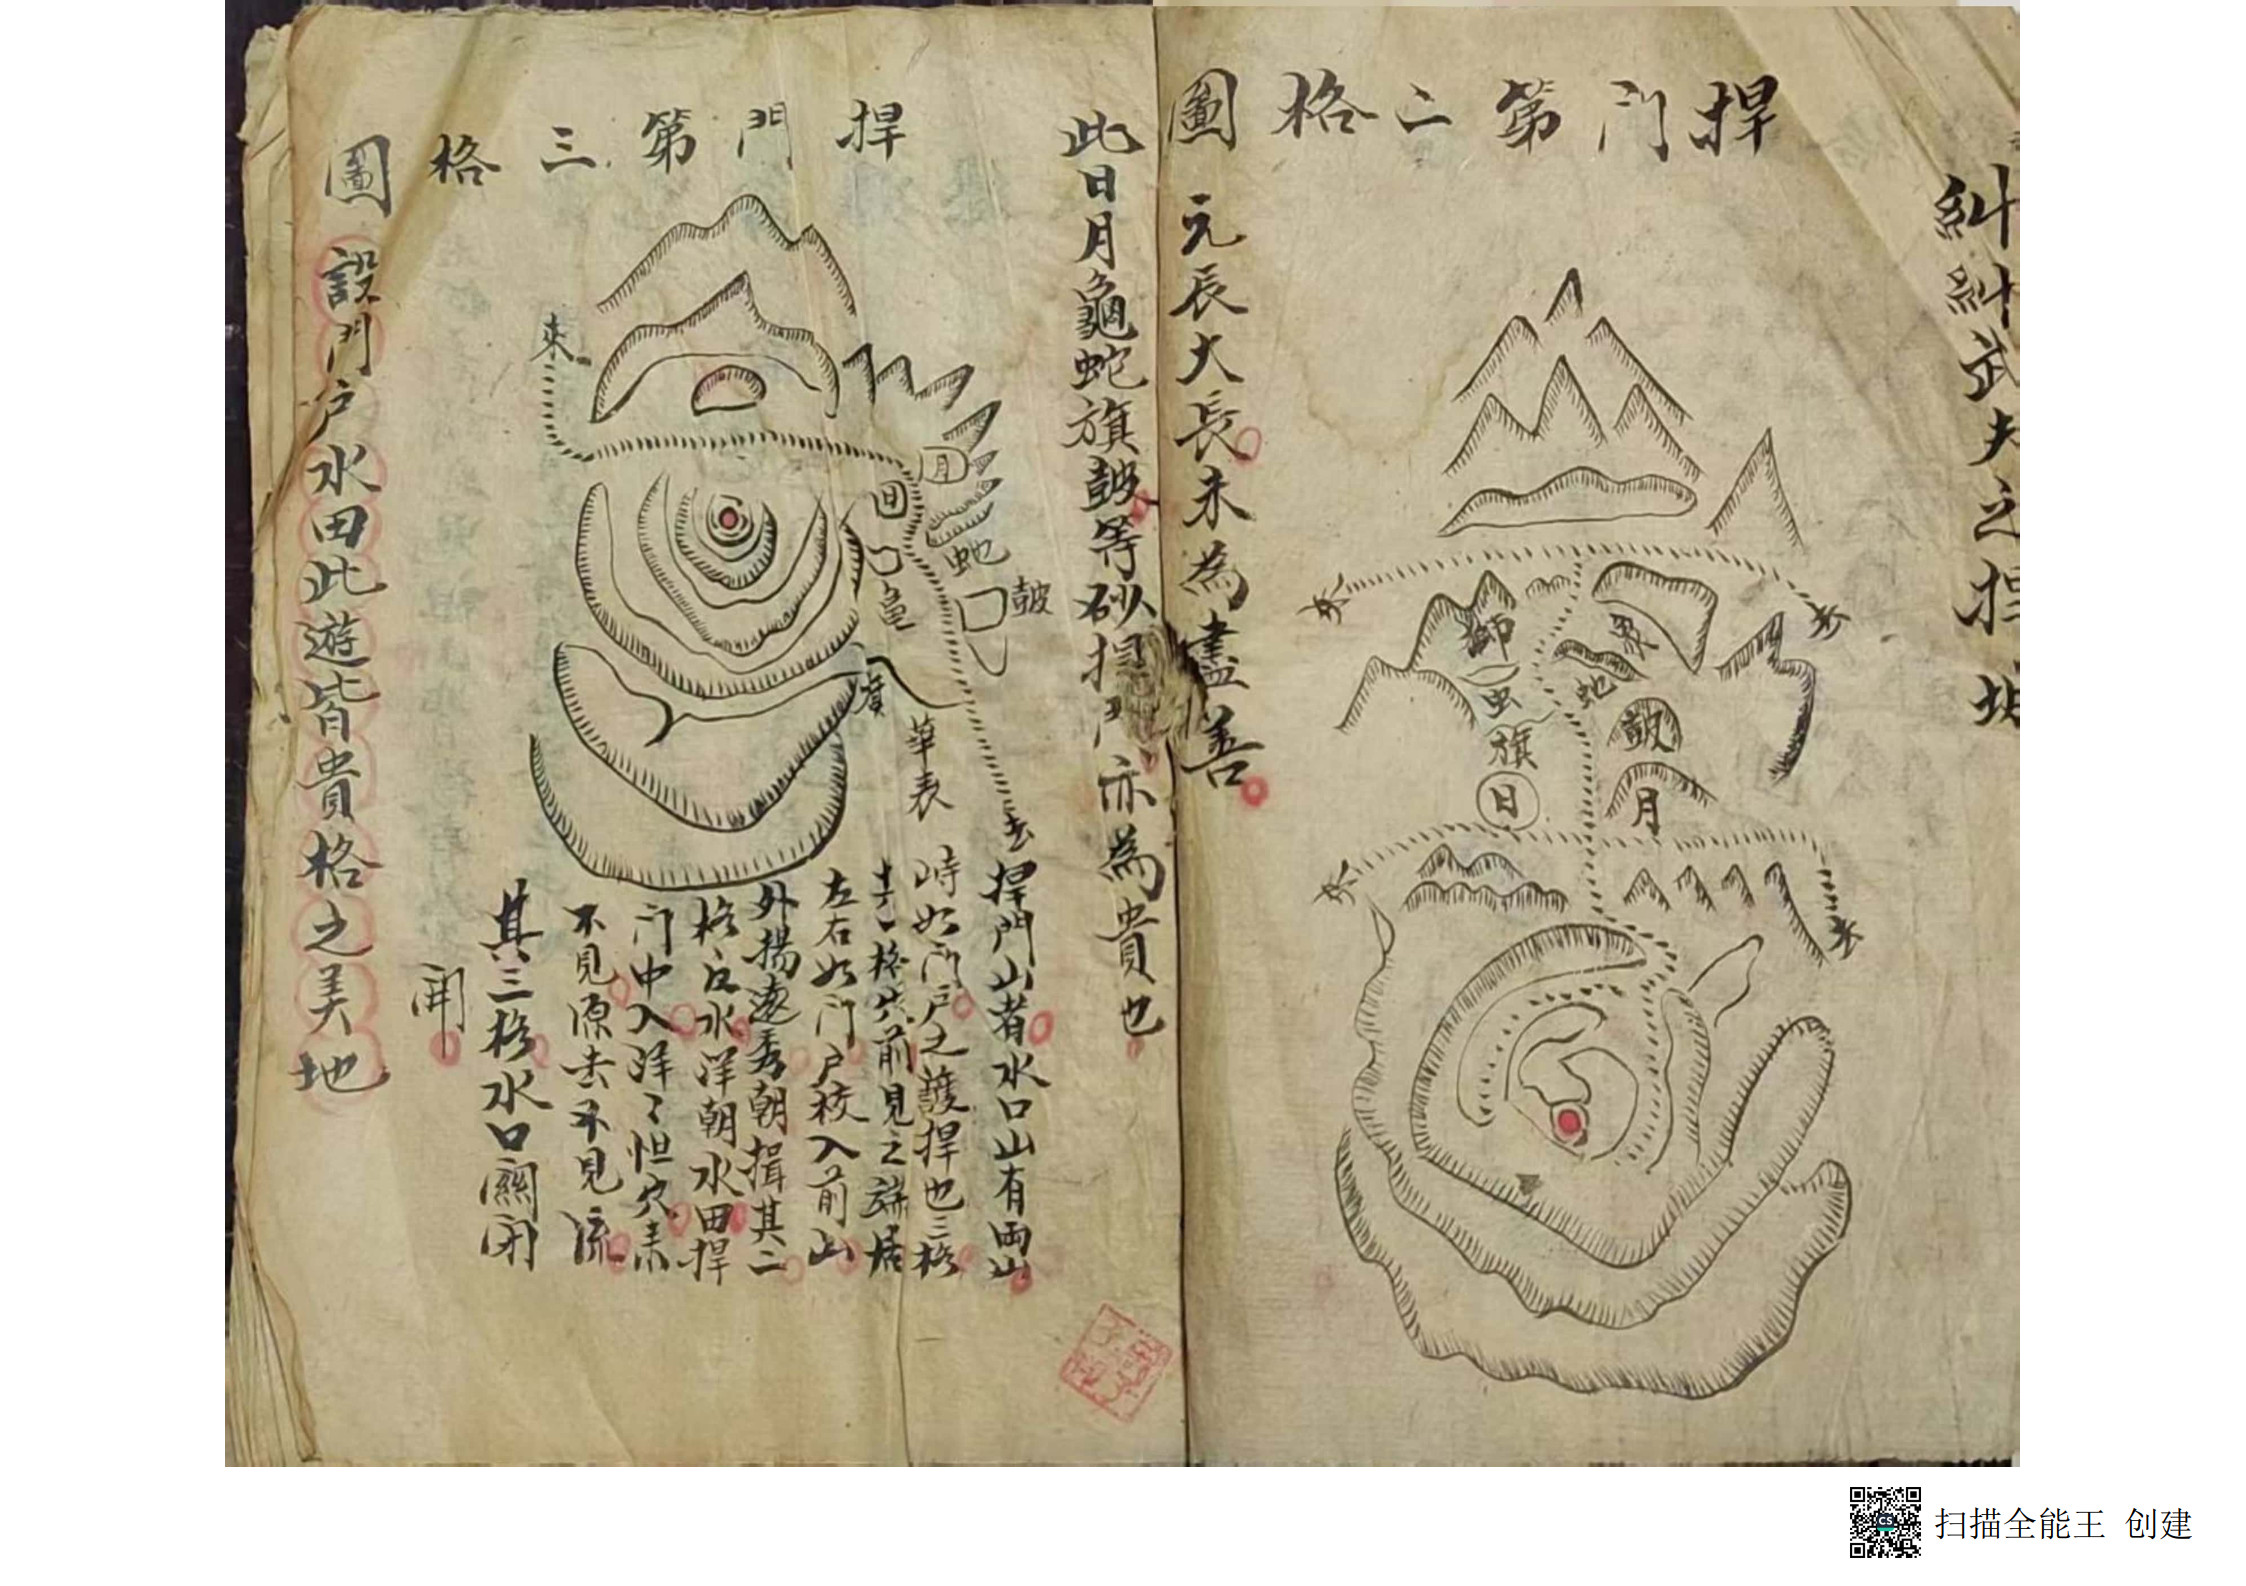 糾糾武夫之捍城
捍門第二格圖
獅
象
虫
蛇
旗
鼓
日
月
元辰大長未為盡善
此日月龜蛇旗鼓等砂捍門亦為貴也
捍門第三格圖
來
月
日
蛇
龜
鼓
旗
華表
去
捍門山者水口山有両山
峙如門戶之護捍也三格
格穴前見之端居
左右如門戶校入前山
外揚遠秀朝揖其二
格乃水洋朝水田捍
门中入洋〻怛穴素
不見源去不見流
其三格水口關闭
開
設門户水田此遊皆貴格之美地
扫描全能王 创建